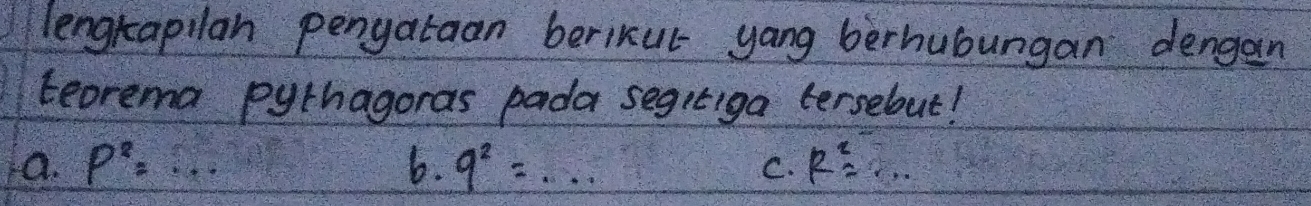 lengkapilah penyataan berikut yang berhubungan dengan
teorema pythagoras pada segitiga tersebut!
a. p² = ... b. q² = .... c. R² = ...